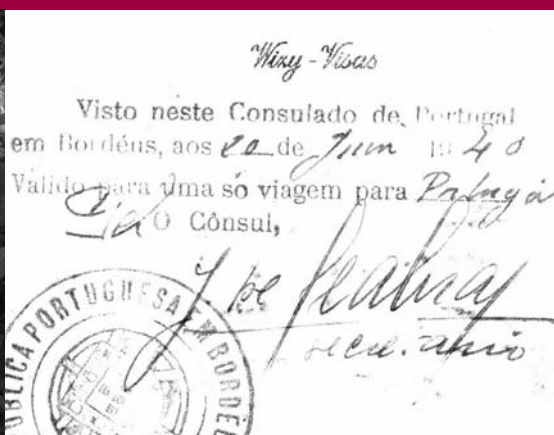 Wizy-Visas
Visto neste Consulado de Portugal
em Bordéus, aos 20 de Jun 1940
Valido para uma só viagem para
O Cônsul,
J de Seabra
secretario
PUBLICA PORTUGUESA EM BORDÉU